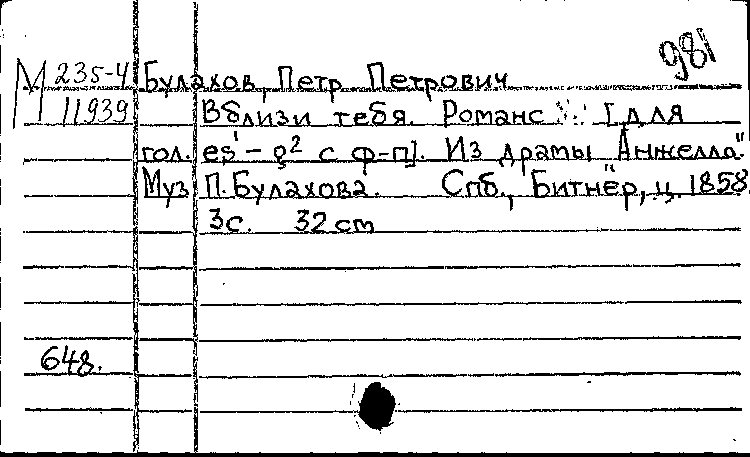 981
М 235-4 Булахов, Петр Петрович
11939 Вблизи тебя. Романс [для
гол. es¹ - g² с ф-п]. Из драмы "Анжелла".
Муз П. Булахова. Спб., Битнер, ц. 1858
3с. 32 cm
648.